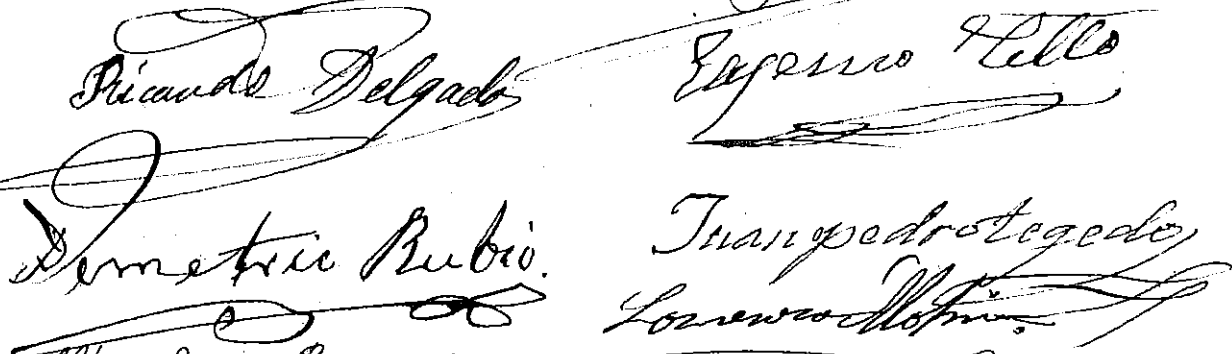 Ricardo Delgado
Eugenio Tello
Demetrio Rubio.
Juan pedro tegedo
Lorenzo Molina